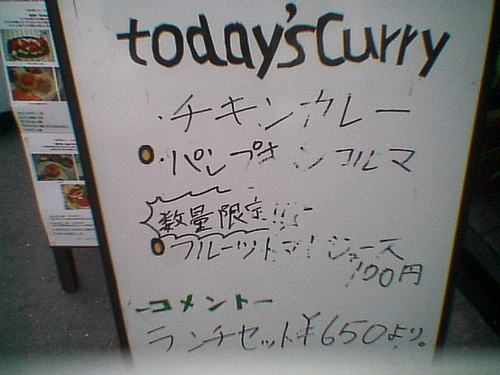 today's Curry
・チキンカレー
・パンプキンコルマ
数量限定!!
フルーツトマトジュース
100円
-コメント-
ランチセット¥650より。